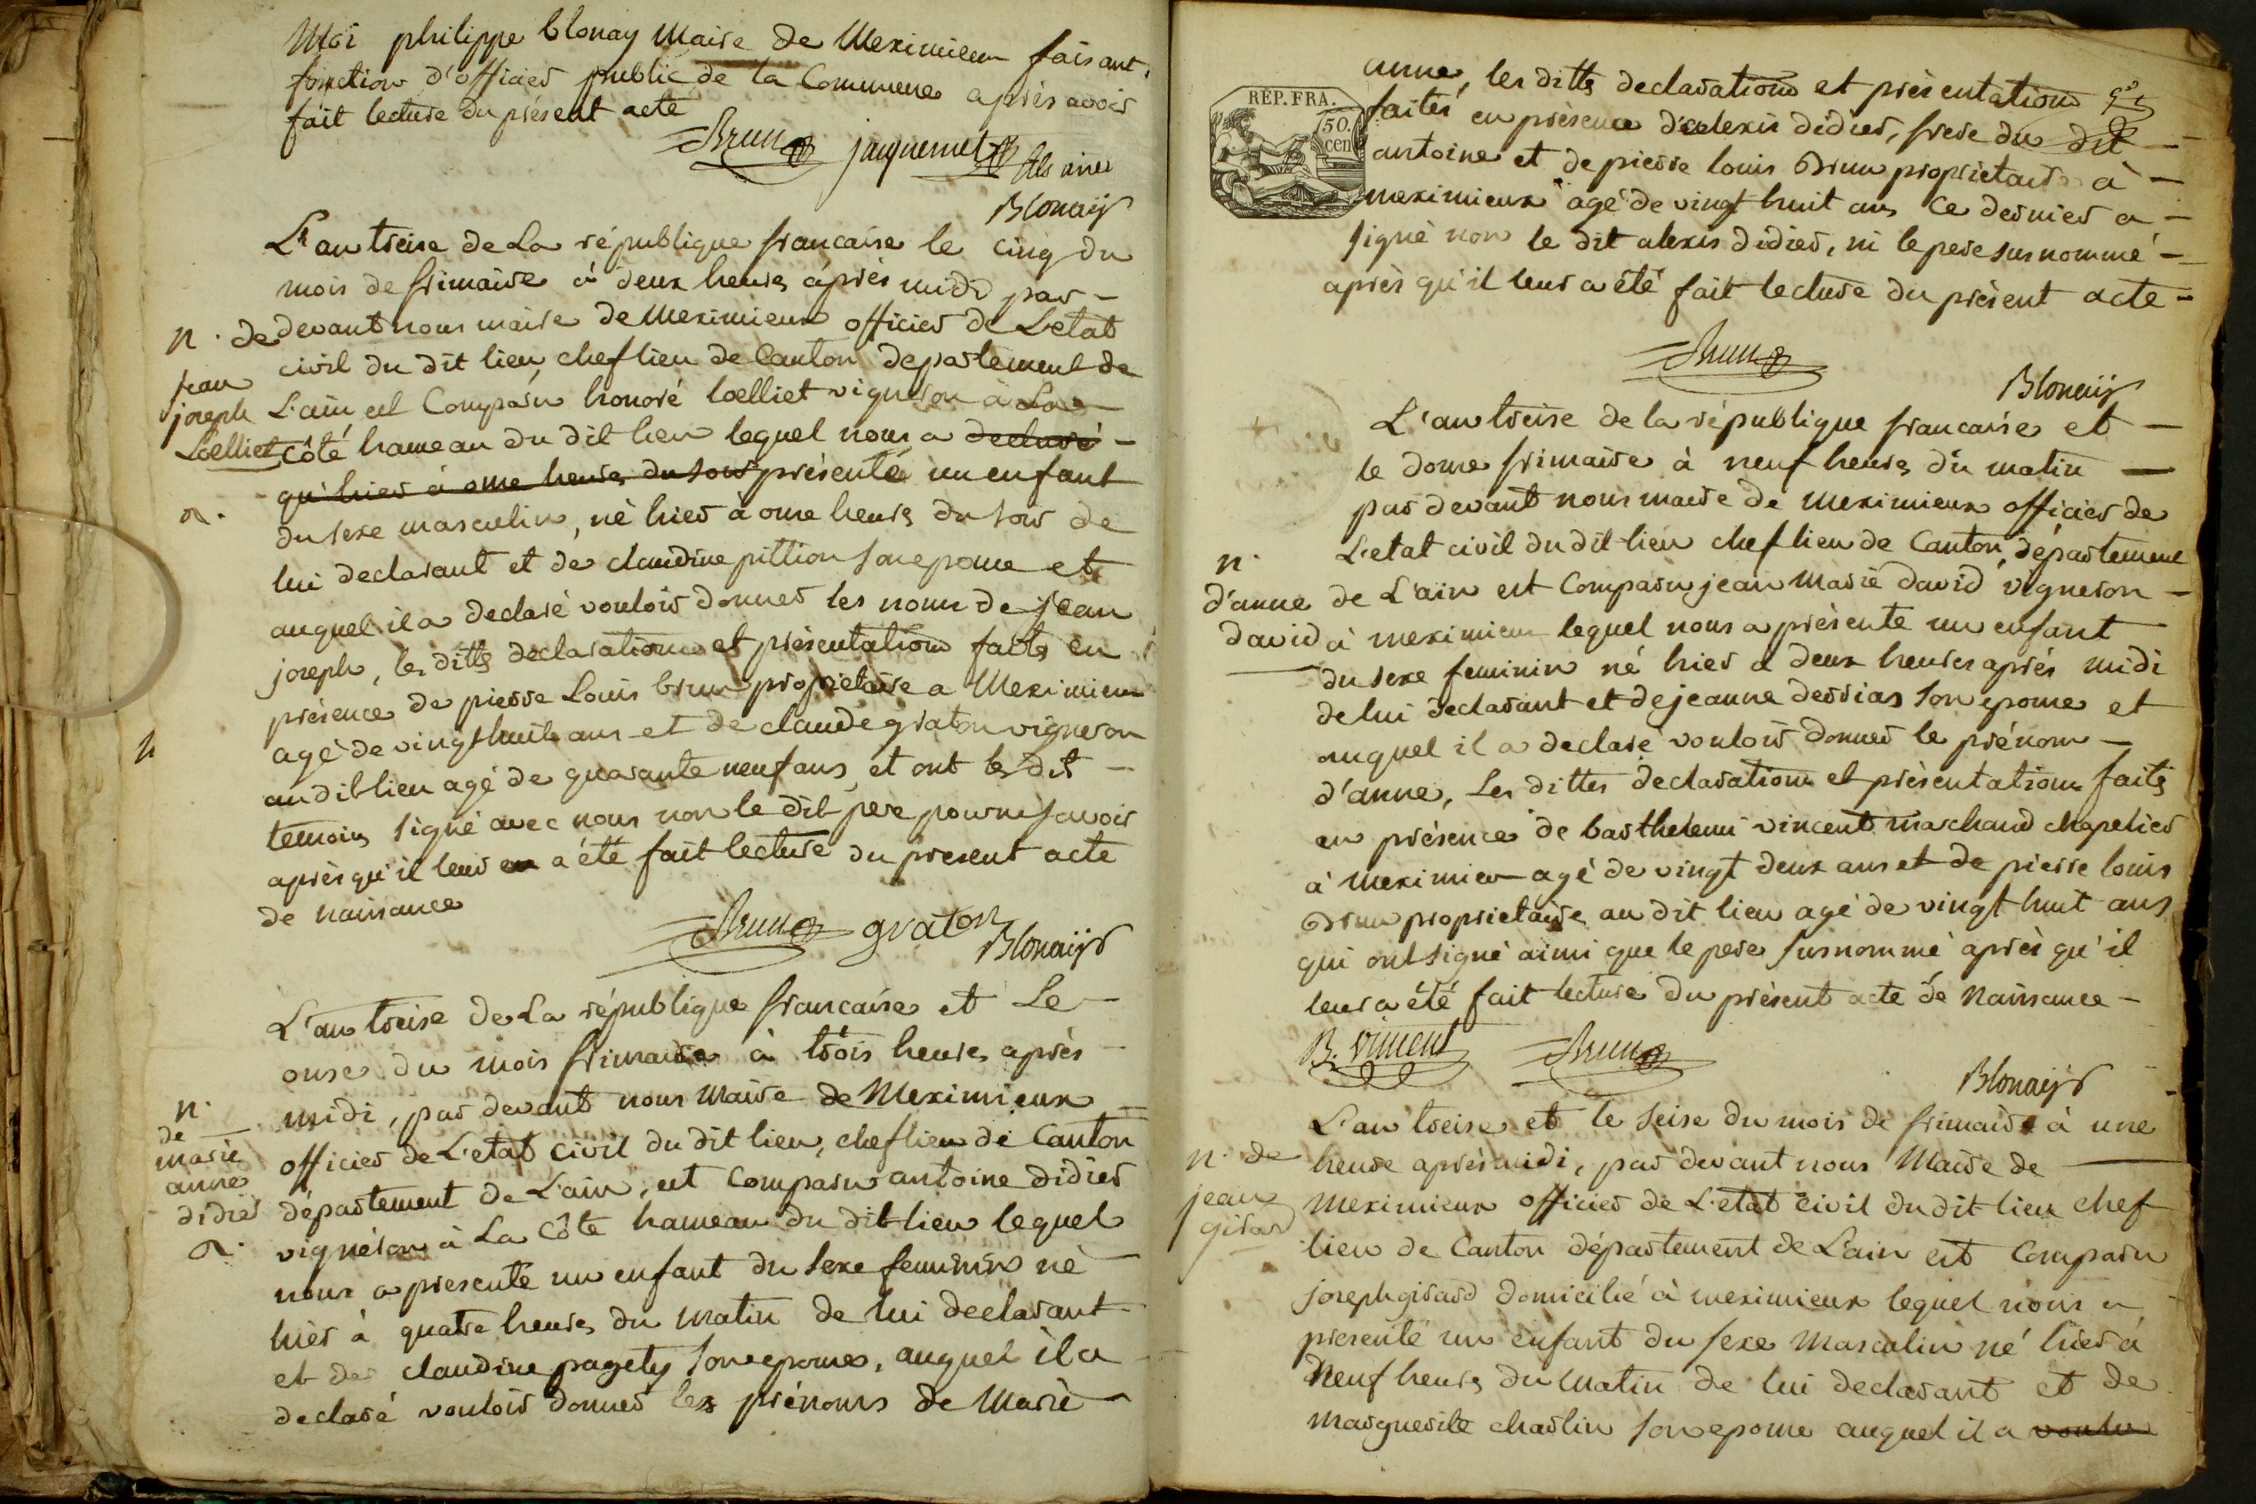 Moi philippe blonay Maire de Meximieux faisant
fonction d'officier public de la Commune apres avoir
fait lecture du présent acte
Brun jacquemet fils ainé
Blonaÿ
L'an treise de La république francaise le cinq du
mois de frimaire à deux heures après midi par-
devant nous maire de Meximieux officier de L'etat
civil du dit lieu chef lieu de Canton departement de
L'ain est Comparu honoré Loelliet vigneron à La
Côté hameau du dit lieu lequel nous a declaré
qu'hier à onse heures du soir présenté un enfant
du sexe masculin, né hier à onse heures du soir de
lui declarant et de claudine pittion son epouse et
auquel il a declaré vouloir donner les noms de jean
joseph, les dittes declarations et présentations faites en
présence de pierre Louis brun proprietaire a Meximieux
agé de vingt huit ans et de claude graton vigneron
au dit lieu agé de quarante neuf ans, et ont les dits
temoins signé avec nous non le dit pere pour ne savoir
après qu'il leur en a été fait lecture du present acte
de naissance
Brun graton
Blonaÿ
n. de
jean
joseph
Loelliet
n
L'an treise de La république francaise et Le
onse du mois frimaire à trois heures après
midi, par devant nous Maire de Meximieux
officier de L'etat civil du dit lieu, chef lieu de Canton
département de L'ain, est Comparu antoine didier
vigneron à La Côte hameau du dit lieu lequel
nous a presenté un enfant du sexe feminin né
hier à quatre heures du matin de lui declarant
et de claudine pagety son epouse, auquel il a
declaré vouloir donner les prénoms de Marie
n.
de
marie
anne
didier
RÉP. FRA.
50.
cen
anne, les dittes declarations et présentations
faites en présence d'alexis didier, frere du dit
antoine et de pierre louis Brun proprietaire à
meximieux agé de vingt huit ans ce dernier a
signé non le dit alexis didier, ni le pere susnommé
après qu'il leur a été fait lecture du présent acte
Brun
Blonaÿ
L'an treise de la république francaise et
le douse frimaire à neuf heures du matin
par devant nous maire de Meximieux officier de
L'etat civil du dit lieu chef lieu de Canton, département
de L'ain est Comparu jean Marie david vigneron
à meximieux lequel nous a présenté un enfant
du sexe feminin né hier à deux heures après midi
de lui declarant et de jeanne derrias son epouse et
auquel il a declaré vouloir donner le prénom
d'anne, Les dittes declarations et présentations faites
en présence de barthelemi vincent marchand chapelier
à Meximieux agé de vingt deux ans et de pierre louis
Brun proprietaire au dit lieu agé de vingt huit ans
qui ont signé ainsi que le pere susnommé après qu'il
leur a été fait lecture du présent acte de Naissance
B. vincent Brun
Blonaÿ
n.
d'anne
david
L'an treise et le seise du mois de frimaire à une
heure après midi, par devant nous Maire de
Meximieux officier de L'etat civil du dit lieu chef
lieu de Canton département de L'ain est Comparu
joseph girard domicilié à meximieux lequel nous a
presenté un enfant du sexe Masculin né hier à
Neuf heures du matin de lui declarant et de
Marguerite charlin son epouse auquel il a voulu
n. de
jean
girard